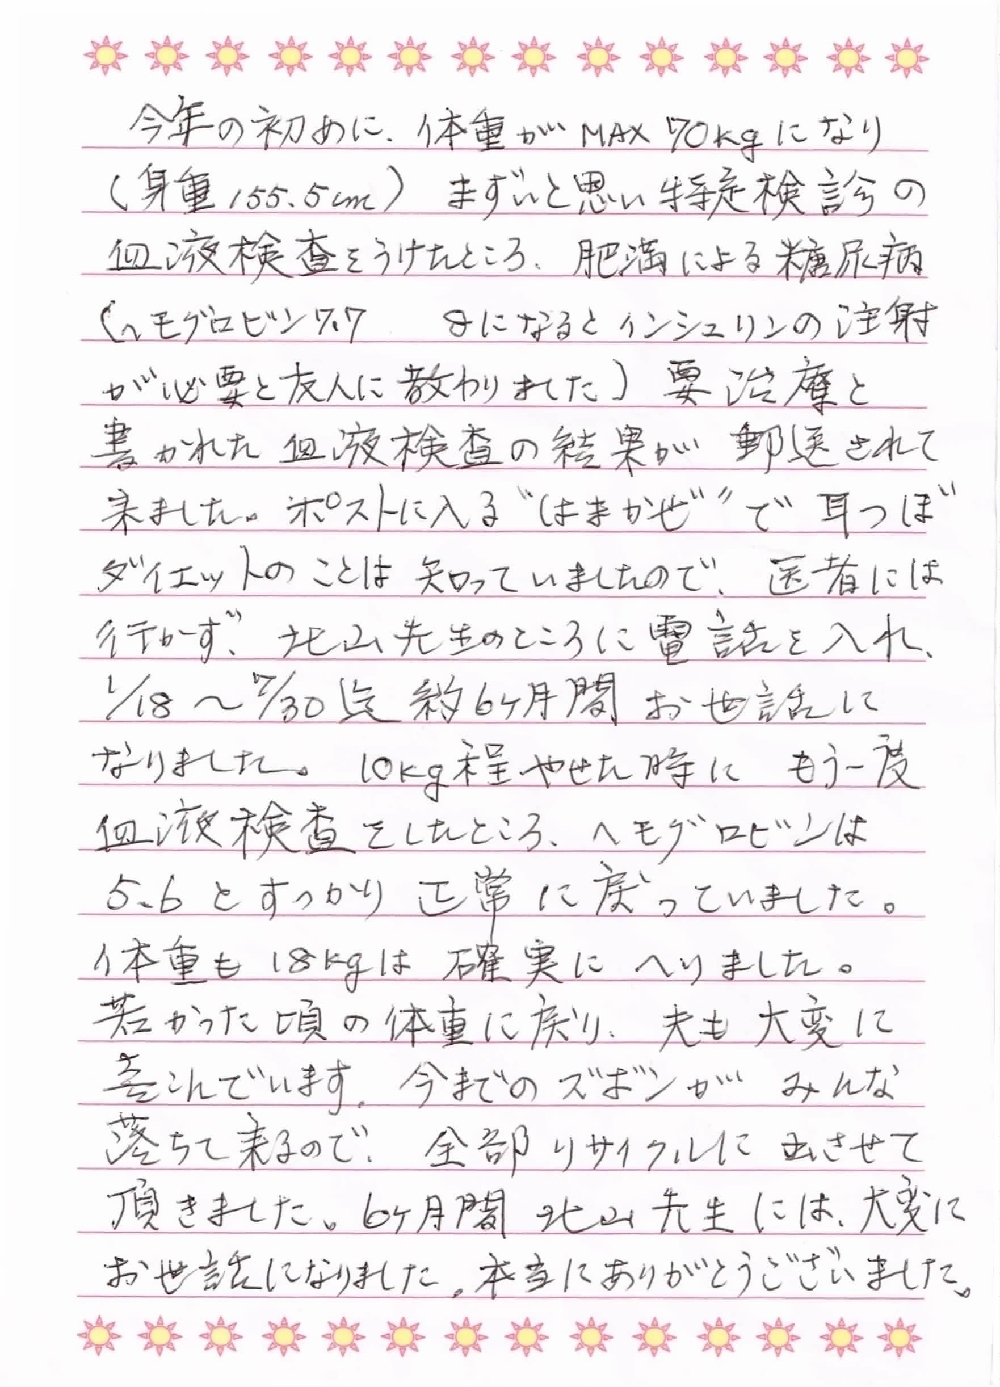 今年の初めに、体重がMAX 70kgになり
(身重155.5cm) まずいと思い特定検診の
血液検査をうけたところ、肥満による糖尿病
(ヘモグロビン7.7 8になるとインシュリンの注射
が必要と友人に教わりました) 要治療と
書かれた血液検査の結果が 郵送されて
来ました。ポストに入る"はまかぜ"で 耳つぼ
ダイエットのことは 知っていましたので、医者には
行かず、北山先生のところに電話を入れ、
1/18〜7/30迄 約6ヶ月間 お世話に
なりました。 10kg程やせた時に もう一度
血液検査をしたところ、ヘモグロビンは
5.6とすっかり 正常に戻っていました。
体重も18kgは 確実に へりました。
若かった頃の体重に戻り、夫も大変に
喜こんでいます。今までのズボンが みんな
落ちて来るので、全部リサイクルに出させて
頂きました。6ヶ月間 北山先生には、大変に
お世話になりました。本当にありがとうございました。